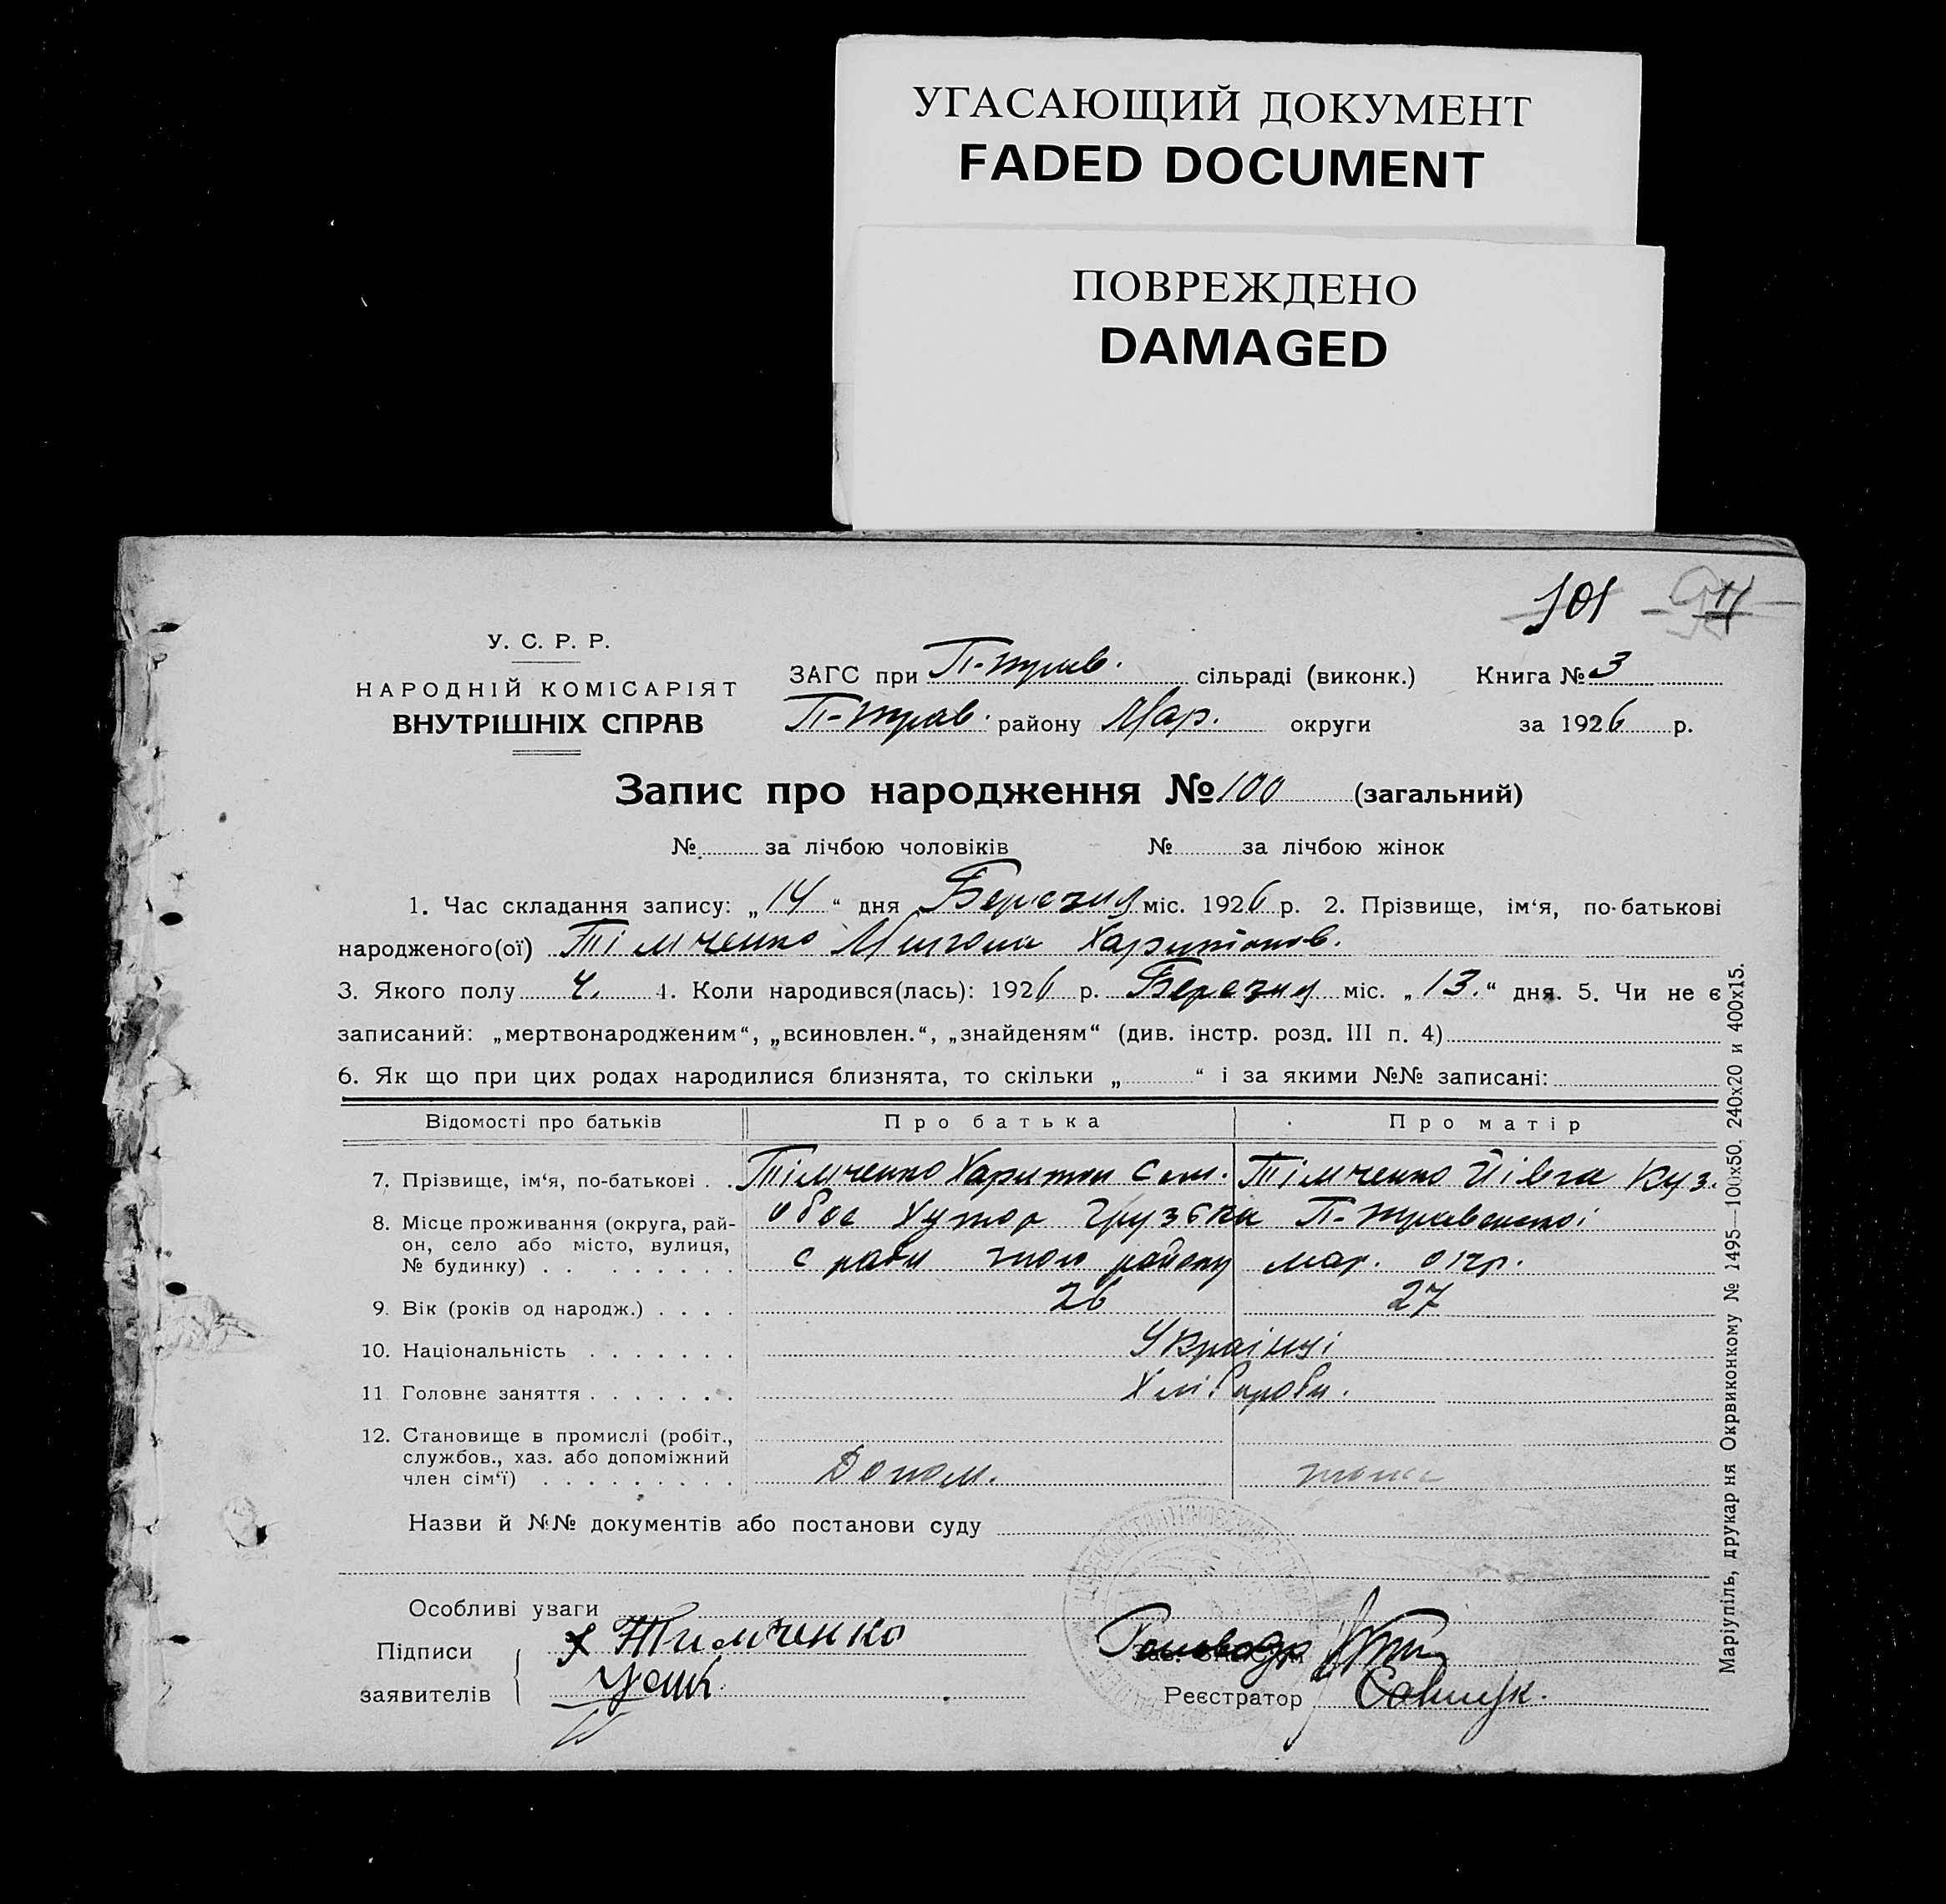 УГАСАЮЩИЙ ДОКУМЕНТ
FADED DOCUMENT
ПОВРЕЖДЕНО
DAMAGED
101
У. С. Р. Р.
НАРОДНІЙ КОМІСАРІЯТ
ВНУТРІШНІХ СПРАВ
ЗАГС при П-трав. сільраді (виконк.) Книга № 3
П-трав. району Мар. округи за 1926 р.
Запис про народження № 100 (загальний)
№ за лічбою чоловіків № за лічбою жінок
1. Час складання запису: „14“ дня Березня міс. 1926 р. 2. Прізвище, ім‘я, по-батькові
народженого(ої) Тімченко Микола Харитонов.
3. Якого полу ч. 4. Коли народився(лась): 1926 р. Березня міс. „13.“ дня. 5. Чи не є
записаний: „мертвонародженим“, „всиновлен.“, „знайденям“ (див. інстр. розд. III п. 4)
6. Як що при цих родах народилися близнята, то скільки „ “ і за якими №№ записані:
Відомості про батьків Про батька Про матір
7. Прізвище, ім‘я, по-батькові . . Тімченко Харитон Сем. Тімченко Йівга Куз.
8. Місце проживання (округа, рай- обоє Хутор Грузська П-травенської
он, село або місто, вулиця,
№ будинку) . . . . . . . . . с ради того району мар. окр.
9. Вік (років од народж.) . . . . 26 27
10. Національність . . . . . . . Українці
11 Головне заняття . . . . . . . Хліборобн.
12. Становище в промислі (робіт.,
службов., хаз. або допоміжний
член сім‘ї) . . . . . . . . . Допом. тоже
Назви й №№ документів або постанови суду
Особливі уваги
Підписи Тимченко
заявителів
Реєстратор Савчук.
Маріупіль, друкарня Окрвиконкому № 1495—100х50. 240х20 и 400х15.